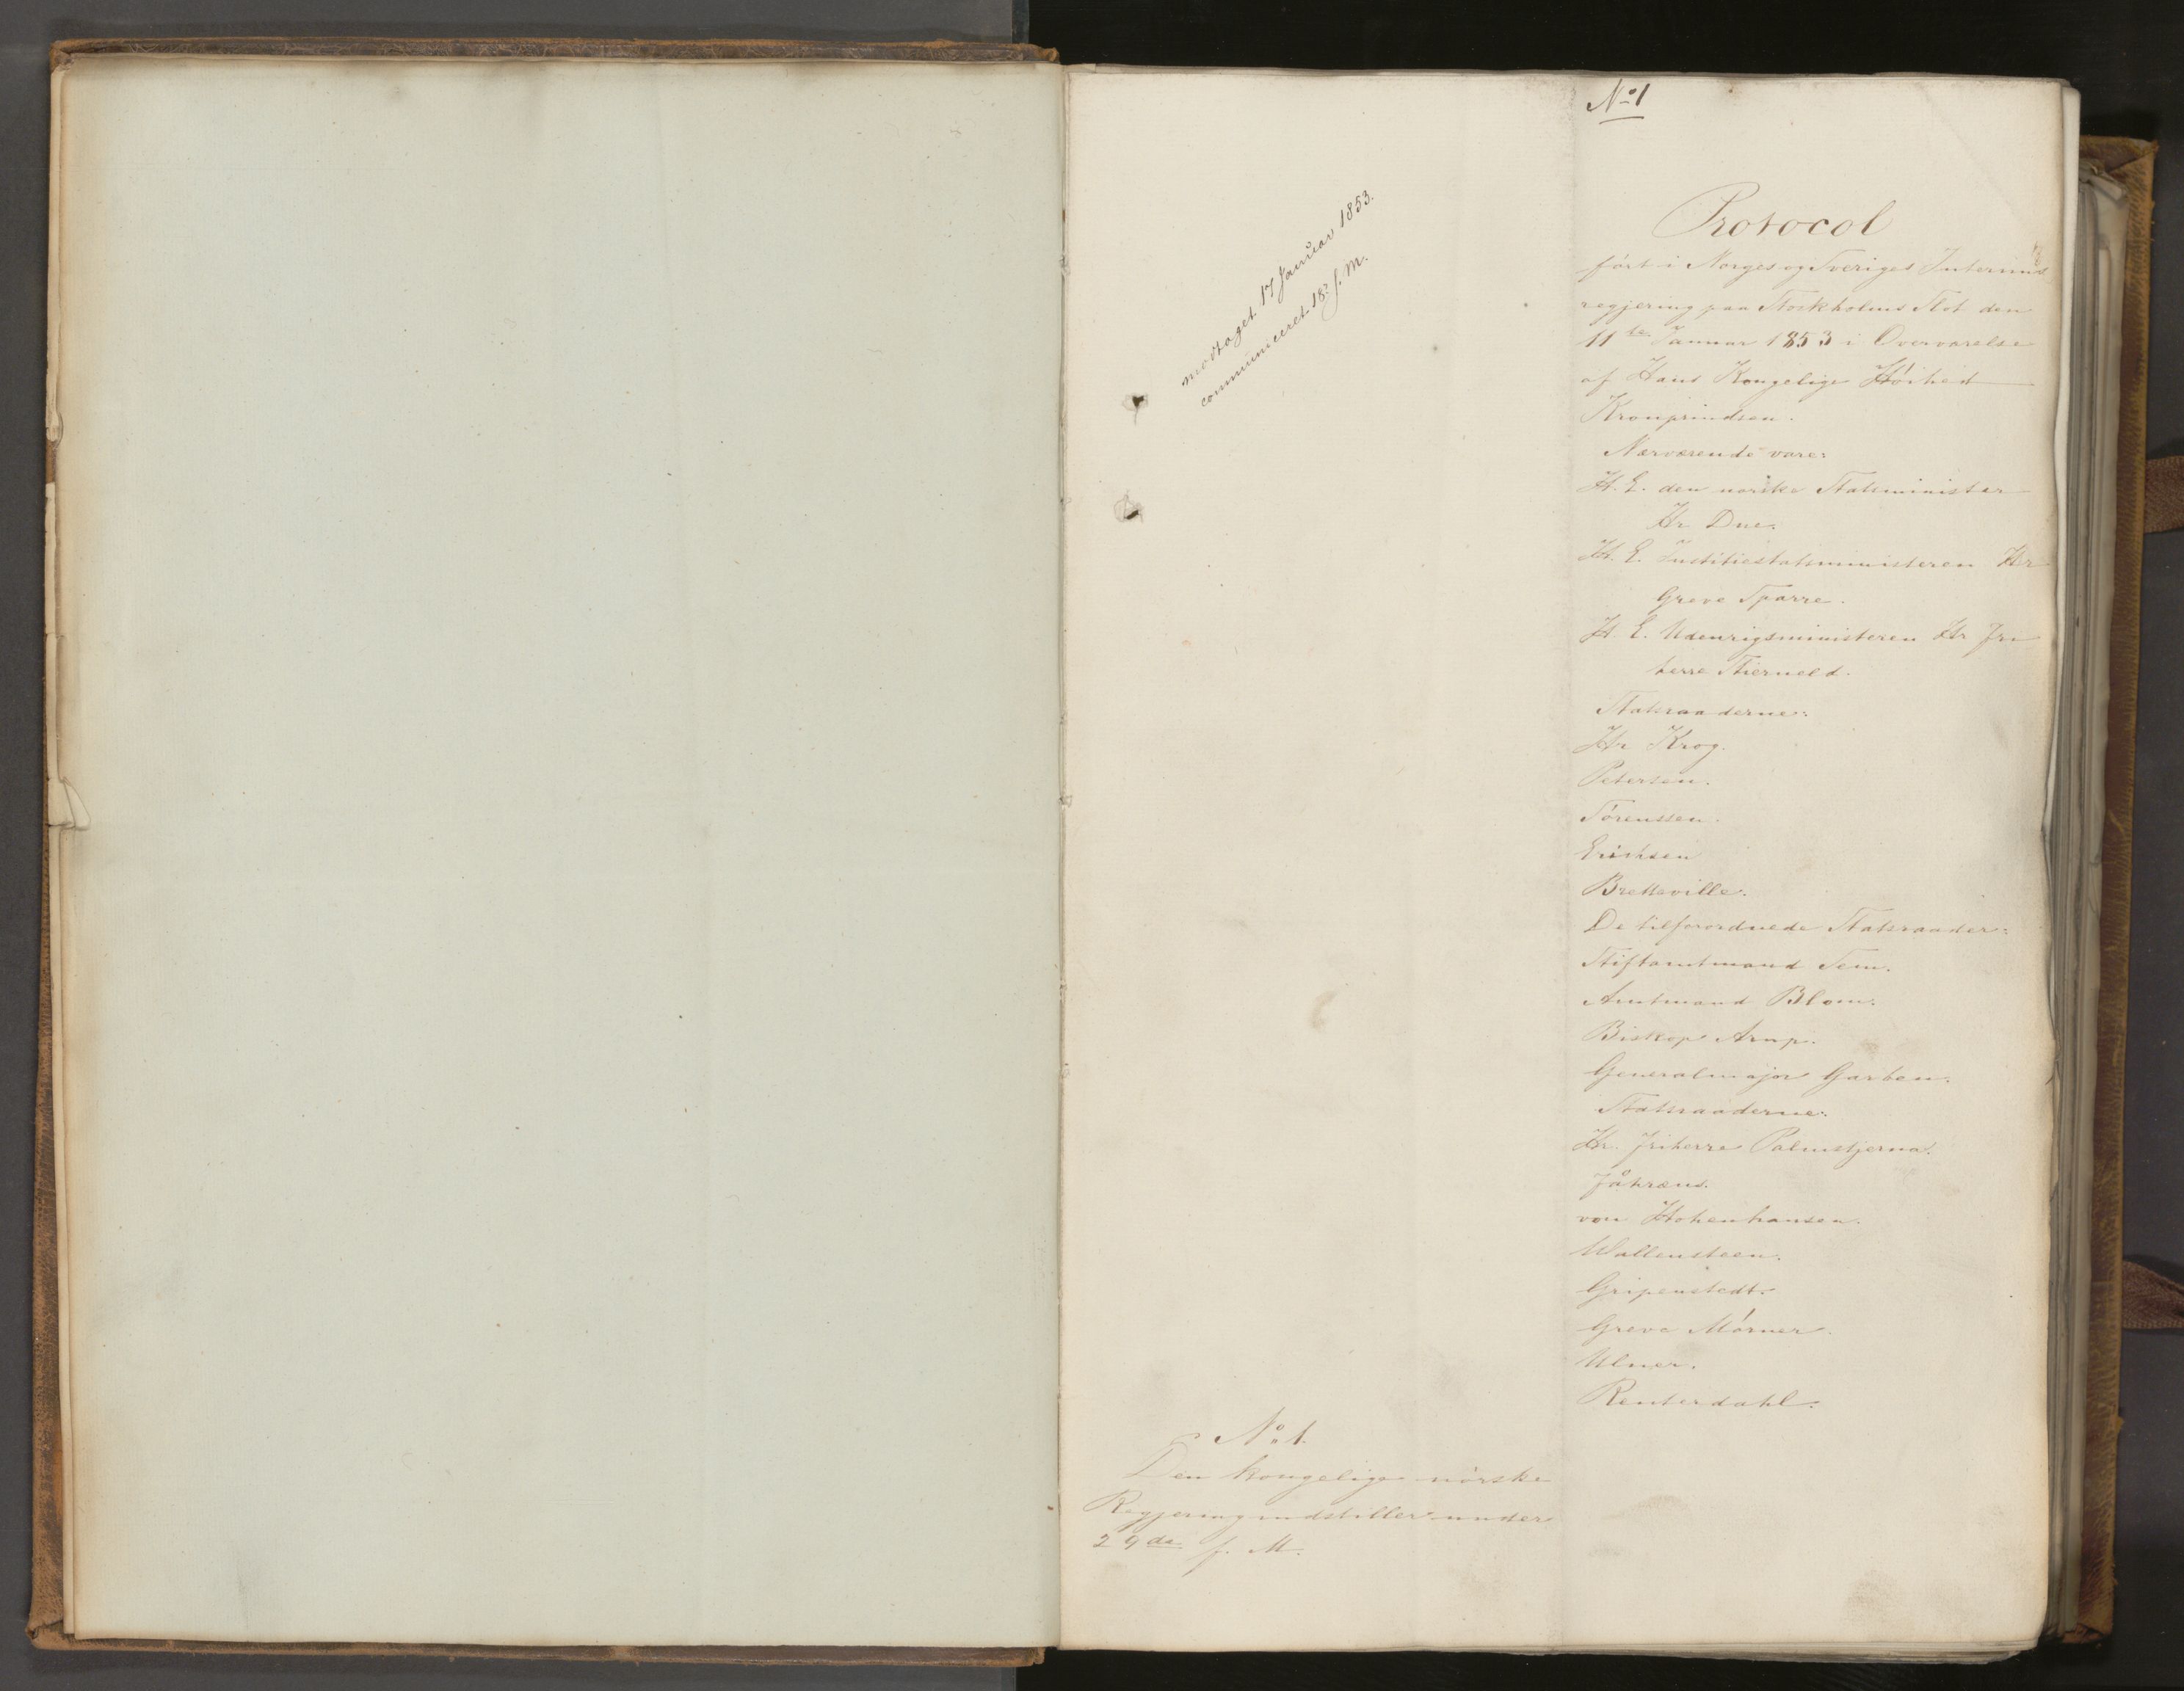 No 1
modtaget 17 Januar 1853.
communiceret 18de s. M.
Protocol
ført i Norges og Sveriges Interims
regjering paa Stockholms Slot den
11te Januar 1853 i Overværelse
af Hans Kongelige Høihed
Kronprindsen.
Nærværende vare:
H. E. den norske Statsminister
Hr Due.
H. E. Justitiestatsministeren Hr
Greve Sparre.
H. E. Udenrigsministeren Hr Fri
herre Stierneld.
Statsraaderne:
Hr Krog.
Petersen.
Sørenssen.
Erichsen
Bretteville.
De tilforordnede Statsraader:
Stiftamtmand Sem.
Amtmand Blom.
Biskop Arup.
Generalmajor Garben.
Statsraaderne:
Hr. Friherre Palmstjerna.
Fåhræus.
von Hohenhausen.
Wallensteen.
Gripenstedt.
Greve Mörner.
Ulner.
Reuterdahl.
No 1.
Den kongelige norske
Regjering indstiller under
29de f. M.